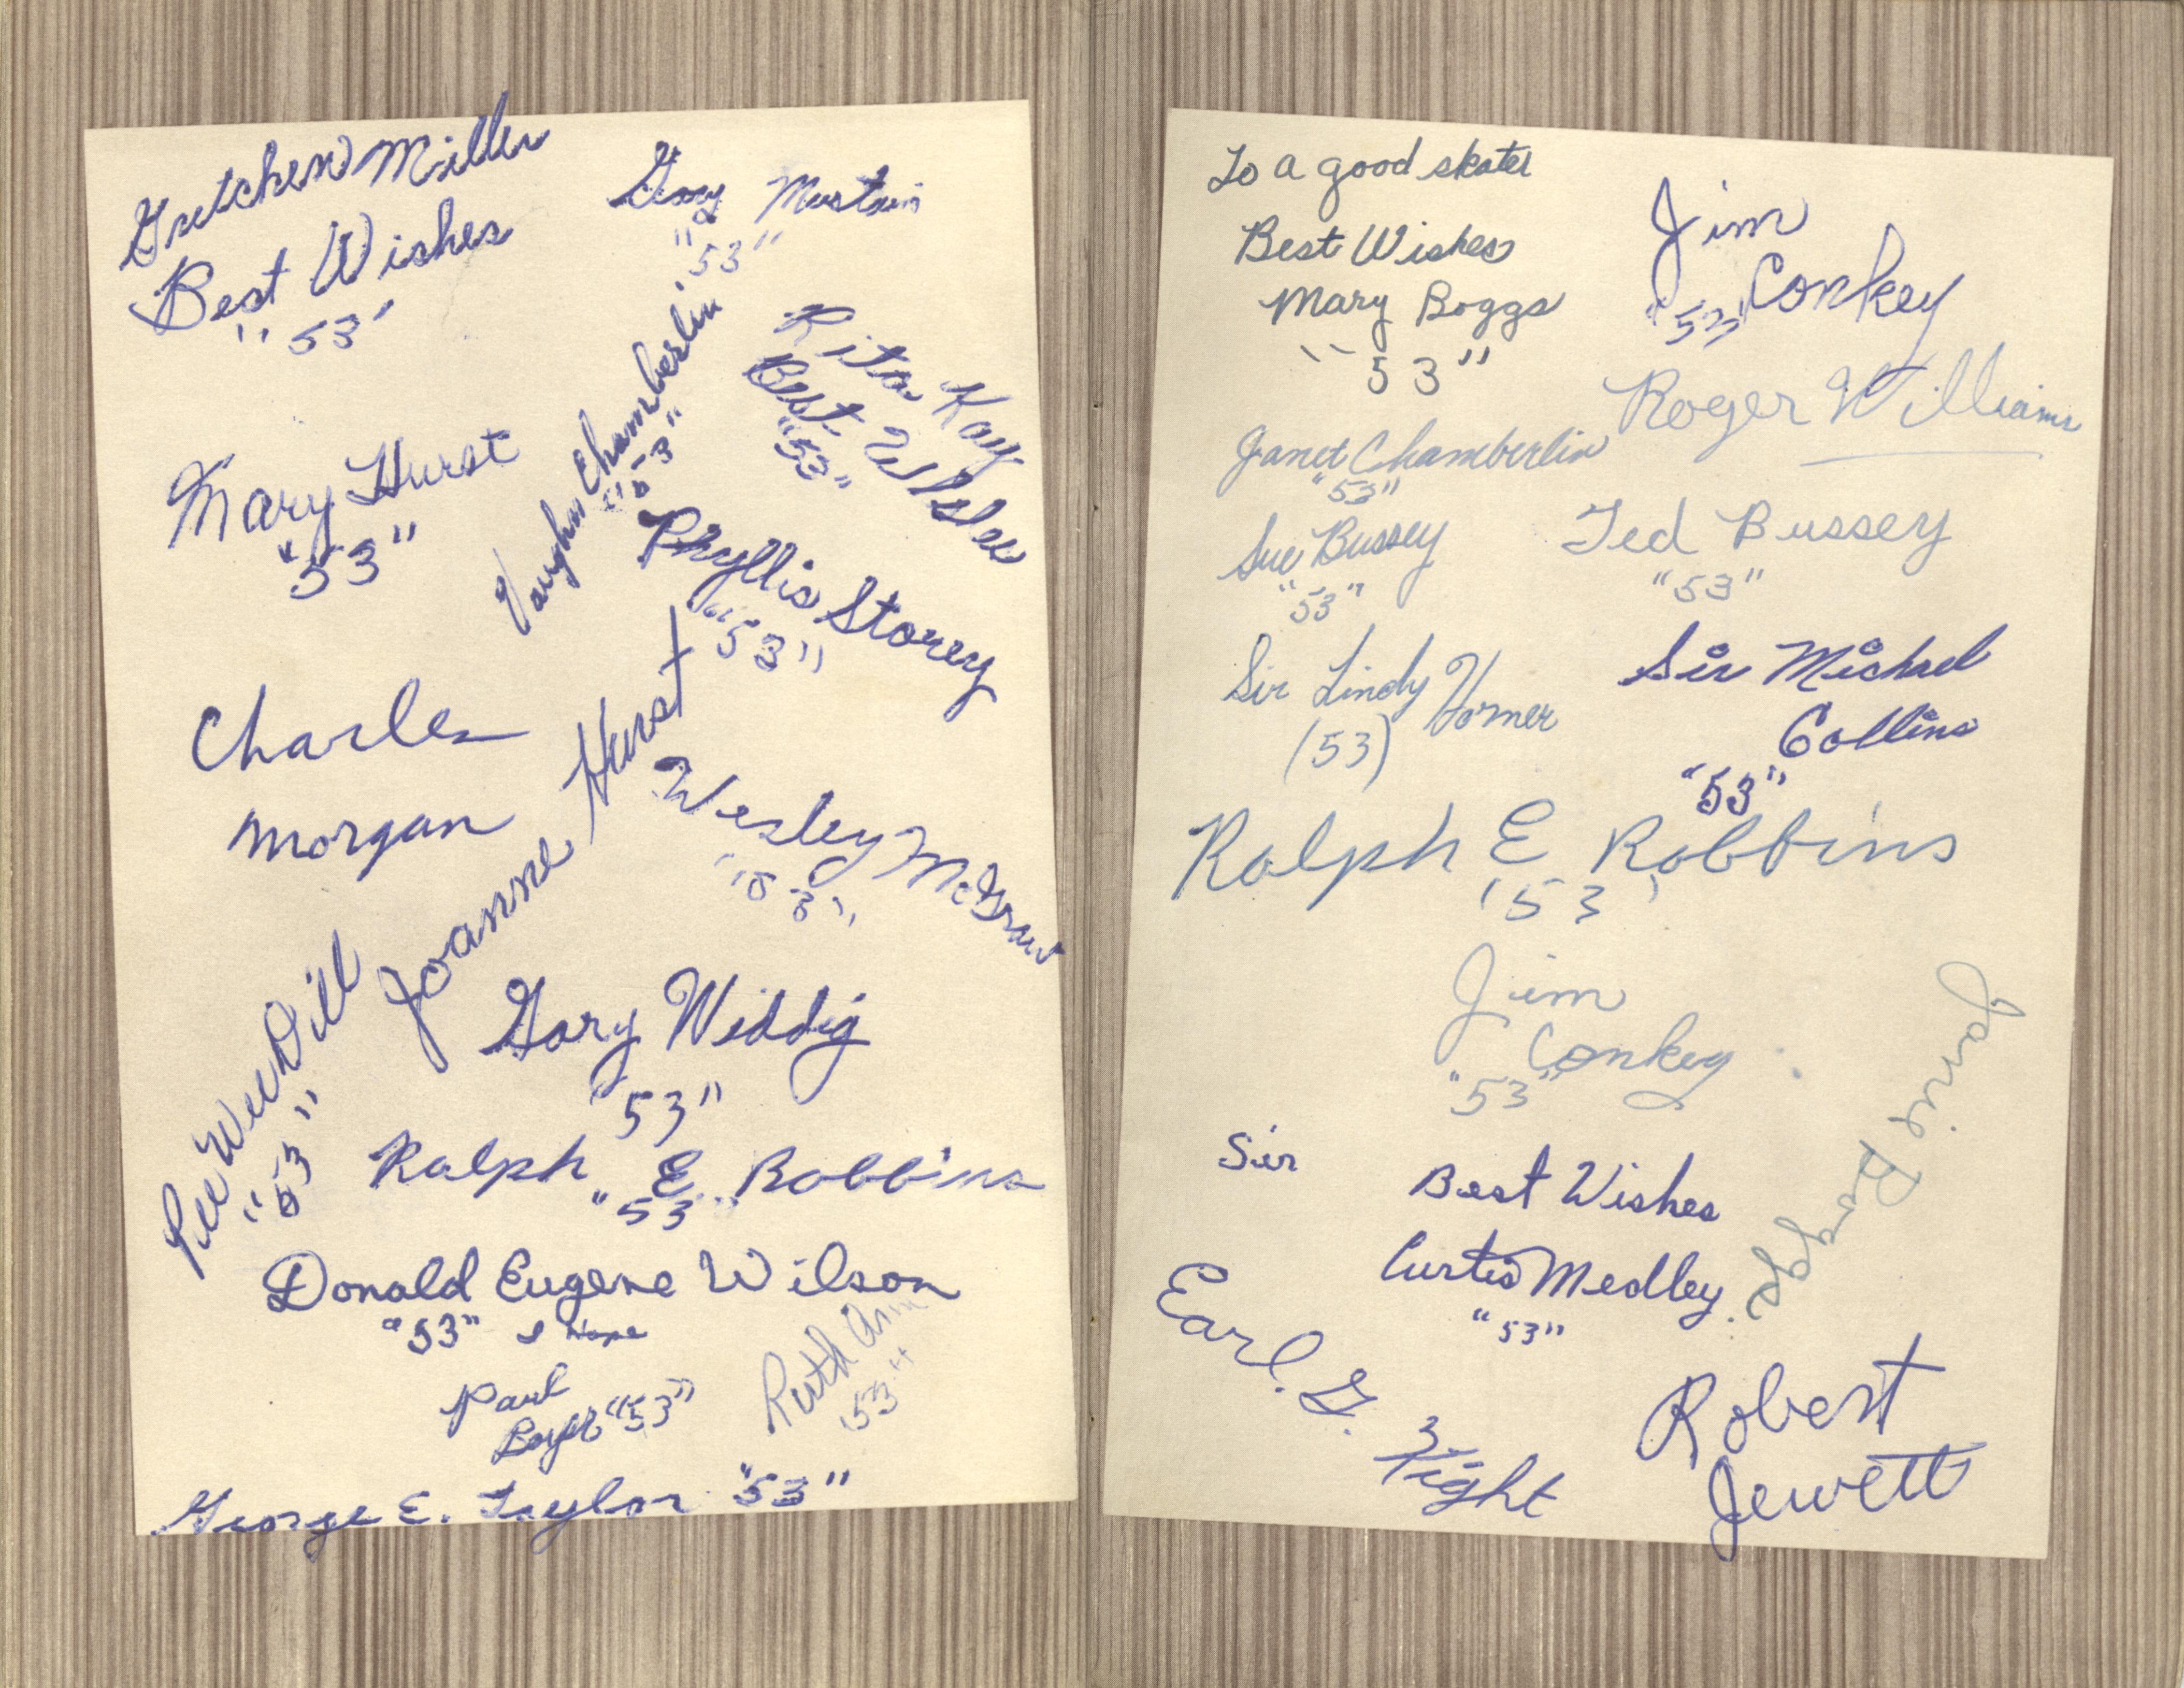 Gretchen Miller
Best Wishes
"53"
Gary Mustain
"53"
Vaughn Chamberlin
"53"
Rita Kay
Best Wishes
"53"
Mary Hurst
"53"
Phyllis Storey
"53"
Charles
Morgan
Joanne Hurst
Wesley McGraw
"53"
Pee Wee Dill
"53"
Gary Widdig
"53"
Ralph E. Robbins
"53"
Donald Eugene Wilson
"53" I Hope
Paul
"53"
Ruth Ann
53"
George E. Taylor "53"
To a good skater
Best Wishes
Mary Boggs
"53"
Jim
Conkey
"53"
Roger Williams
Janet Chamberlin
"53"
Sue Bussey
"53"
Ted Bussey
"53"
Sir Lindy Horner
(53)
Sir Michael
Collins
"53"
Ralph E Robbins
'53'
Jim
Conkey
"53"
Janie Boggs
Sir
Best Wishes
Curtis Medley
"53"
Earl. G. Tight
3
Robert
Jewett